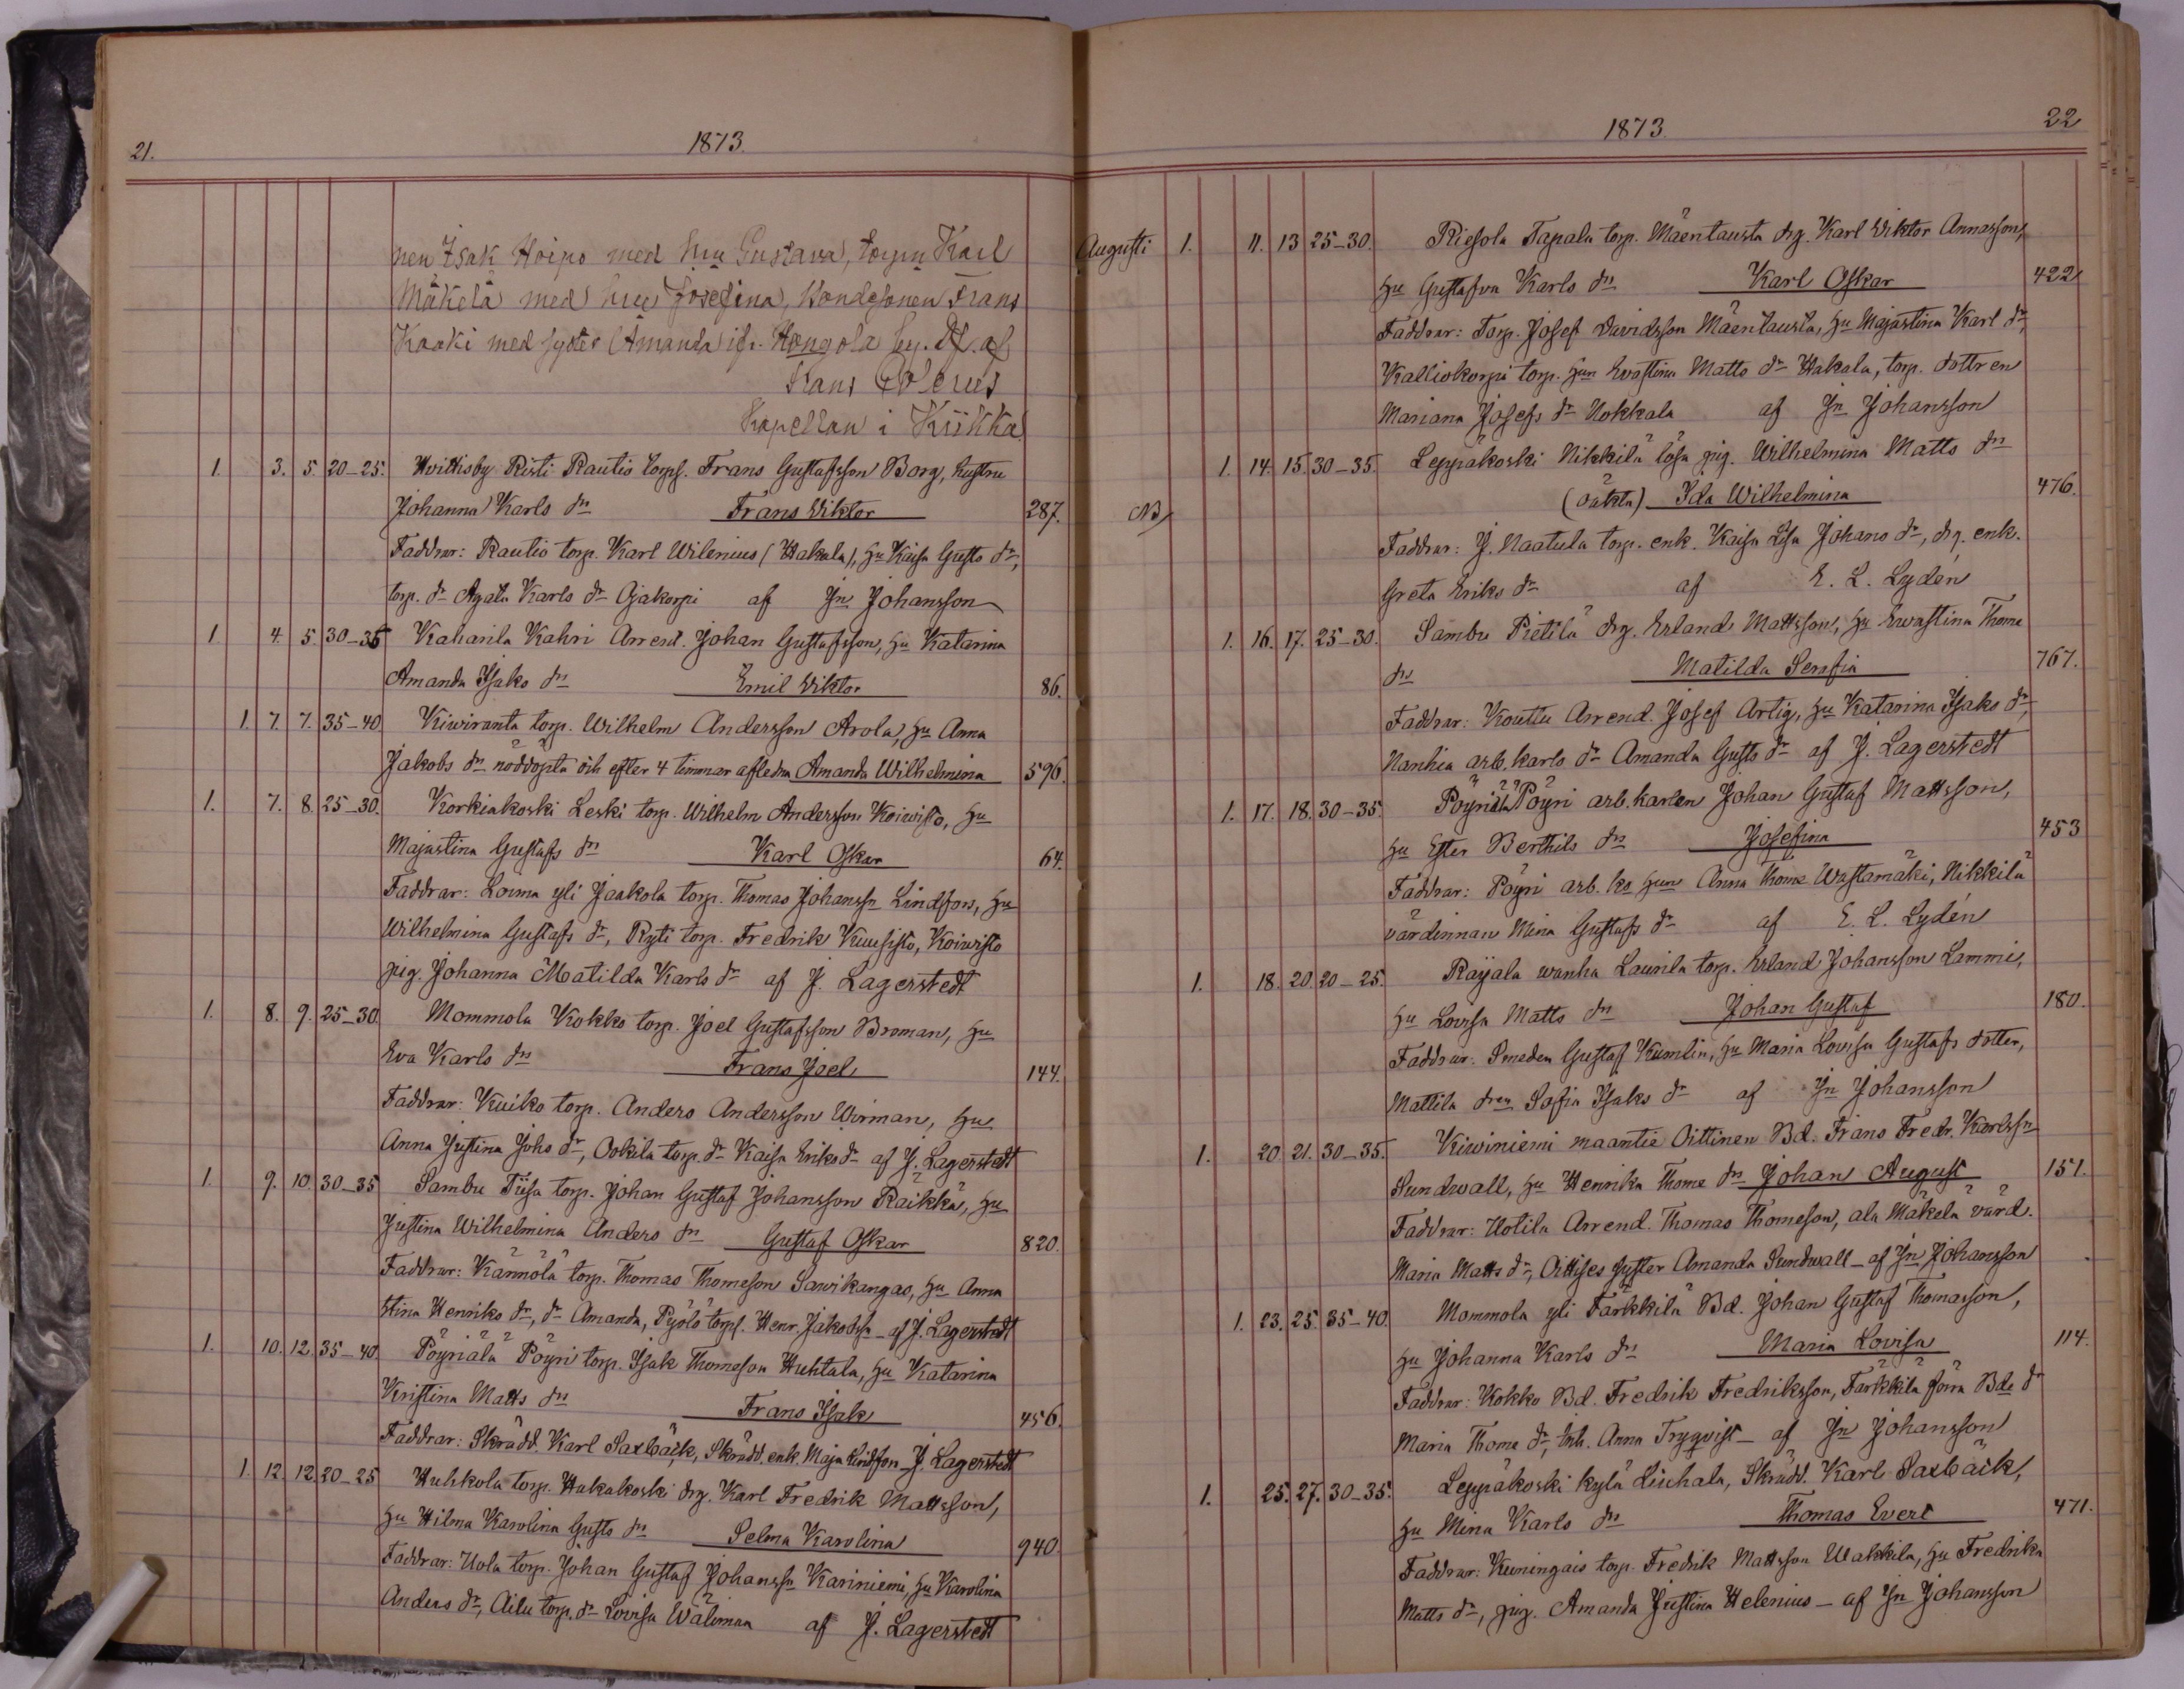 21.
1873.
nen Isak Hoipo med hru Gustava, torpn Karl
Mäkelä med hru Josefina, bondesonen Frans
Kaaki med syster Amanda ifr. Hongola by. Df. af
Frans Polerus
Kapellan i Kiikka
1. 3. 5. 20-25. Hvittisby Risti Rautio torps. Frans Gustafsson Borg, hustru
Johanna Karls dr Frans Viktor 287.
Faddrar: Rautio torp. Karl Wilenius (Hakala), hu Kaisa Gusts dr,
torp. dr Agata Karls dr Ojakorpi af Jn Johansson
1. 4. 5. 30-35 Kaharila Kahri Arrend. Johan Gustafsson, hu Katarina
Amanda Isaks dr Emil Viktor 86.
1. 7. 7. 35-40 Kiwiranta torp. Wilhelm Andersson Arola, hu Anna
Jakobs dr nöddöpta och efter 4 timmar afledna Amanda Wilhelmina 596.
1. 7. 8. 25-30. Korkiakoski Leski torp. Wilhelm Andersson Koiwisto, hu
Majastina Gustafs dr Karl Oskar 64.
Faddrar: Louna yli Jaakola torp. Thomas Johanssn Lindfors, hu
Wilhelmina Gustafs dr, Ryti torp. Fredrik Kuusisto, Koiwisto
pig. Johanna Matilda Karls dr af J. Lagerstedt
1. 8. 9. 25-30. Mommola Kokko torp. Joel Gustafsson Broman, hu
Eva Karls dr Frans Joel 144.
Faddrar: Kuiko torp. Anders Andersson Wirman, hu
Anna Justina Johs dr, Oskila torp. dr Kaisa Eriks dr af J. Lagerstedt
1. 9. 10. 30-35 Sambu Tiisa torp. Johan Gustaf Johansson Raikka, hu
Justina Wilhelmina Anders dr Gustaf Oskar 820.
Faddrar: Kännölä torp. Thomas Thomeson Sawikangas, hu Anna
Stina Henriks dr, dr Amanda, Pyölö torps. Henr. Jakobssn - af J. Lagerstedt
1. 10. 12. 35-40 Pöyriälä Pöyri torp. Isak Thomeson Huhtala, hu Katarina
Kristina Matts dr Frans Isak 456.
Faddrar: Skrädd. Karl Saxbäck, Skrädd. enk. Maja Lindfors - J. Lagerstedt
1. 12. 12. 20-25 Huhkola torp. Hakakoski drg. Karl Fredrik Mattsson,
hu Hilma Karolina Gusts dr Selma Karolina 940.
Faddrar: Uola torp. Johan Gustaf Johanssn Kariniemi, hu Karolina
Anders dr, Ailu torp. dr Lovisa Wälimaa af J. Lagerstedt
1873.
22
Augusti 1. 11. 13 25-30. Riesola Tapala torp. Mäentausta drg. Karl Viktor Annasson,
hu Gustafva Karls dr Karl Oskar 422
Faddrar: Torp. Josef Davidsson Mäentausta, hu Majastina Karl dr,
Kalliokorpi torp. hun Evastina Matts dr Hakala, torp. dottren
Mariana Josefs dr Nokkala af Jn Johansson
1. 14. 15. 30-35. Leppäkoski Nikkilä lösa pig. Wilhelmina Matts dr
NB (oäkta) Ida Wilhelmina 476.
Faddrar: J. Naatula torp. enk. Kaisa Lisa Johans dr, drg. enk.
Greta Eriks dr af E. L. Lydén
1. 16. 17. 25-30. Sambu Pietilä drg. Erland Mattsson, hu Ewastina Thome
dr Matilda Serafia 767.
Faddrar: Kouttu Arrend. Josef Artig, hu Katarina Isaks dr,
Nanhia arb. karls dr Amanda Gusts dr af J. Lagerstedt
1. 17. 18. 30-35. Pöyriälä Pöyri arb. karlen Johan Gustaf Mattsson,
hu Ester Berthils dr Josefina 453
Faddrar: Pöyri arb. ks hun Anna Thome Wastamäki, Nikkilä
värdinnan Mina Gustafs dr af E. L. Lydén
1. 18. 20. 20-25. Raijala wanha Laurila torp. Erland Johansson Lammi,
hu Lovisa Matts dr Johan Gustaf 180.
Faddrar: Smeden Gustaf Kumlin, hu Maria Lovisa Gustafs dotter,
Mattila dren Sofia Isaks dr af Jn Johansson
1. 20. 21. 30-35. Kiwiniemi maantie Oittinen Bd. Frans Fredr. Karlssn
Sundwall, hu Henrika Thome dr Johan August 151.
Faddrar: Uotila Arrend. Thomas Thomeson, ala Mäkelä värd.
Maria Matts dr, Oittises syster Amanda Sundwall - af Jn Johansson
1. 23. 25. 35-40. Mommola yli Färkkilä Bd. Johan Gustaf Thomasson,
hu Johanna Karls dr Maria Lovisa 114.
Faddrar: Kokko Bd. Fredrik Fredriksson, Färkkilä förra Bds dr
Maria Thome dr, Inh. Anna Trygqvist - af Jn Johansson
1. 25. 27. 30-35. Leppäkoski kylä Liuhala, Skrädd. Karl Saxbäck,
hu Mina Karls dr Thomas Evert 471.
Faddrar: Kuningais torp. Fredrik Mattsson Wakkila, hu Fredrika
Matts dr, pig. Amanda Justina Helenius - af Jn Johansson